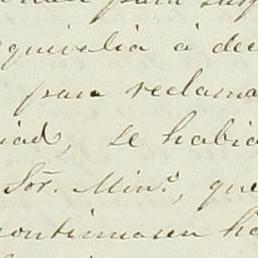 para
equivalia á dec
para reclama
iad, se habia
Sor. Minº., que
continuasen ha